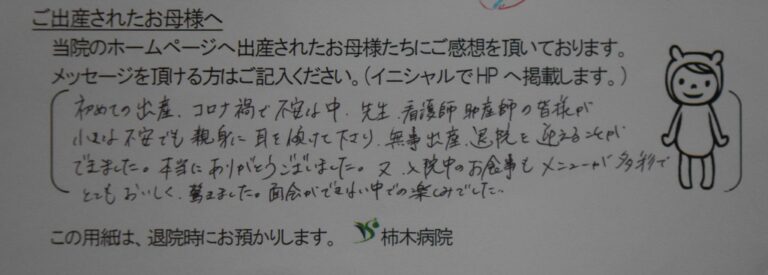 ご出産されたお母様へ
当院のホームページへ出産されたお母様たちにご感想を頂いております。
メッセージを頂ける方はご記入ください。(イニシャルでHPへ掲載します。)
初めての出産、コロナ禍で不安な中、先生、看護師助産師の皆様が
小さな不安でも親身に耳を傾けて下さり、無事出産、退院を迎えることが
できました。本当にありがとうございました。又、入院中のお食事もメニューが多彩で
とてもおいしく、驚きました。面会ができない中での楽しみでした。
この用紙は、退院時にお預かりします。 柿木病院